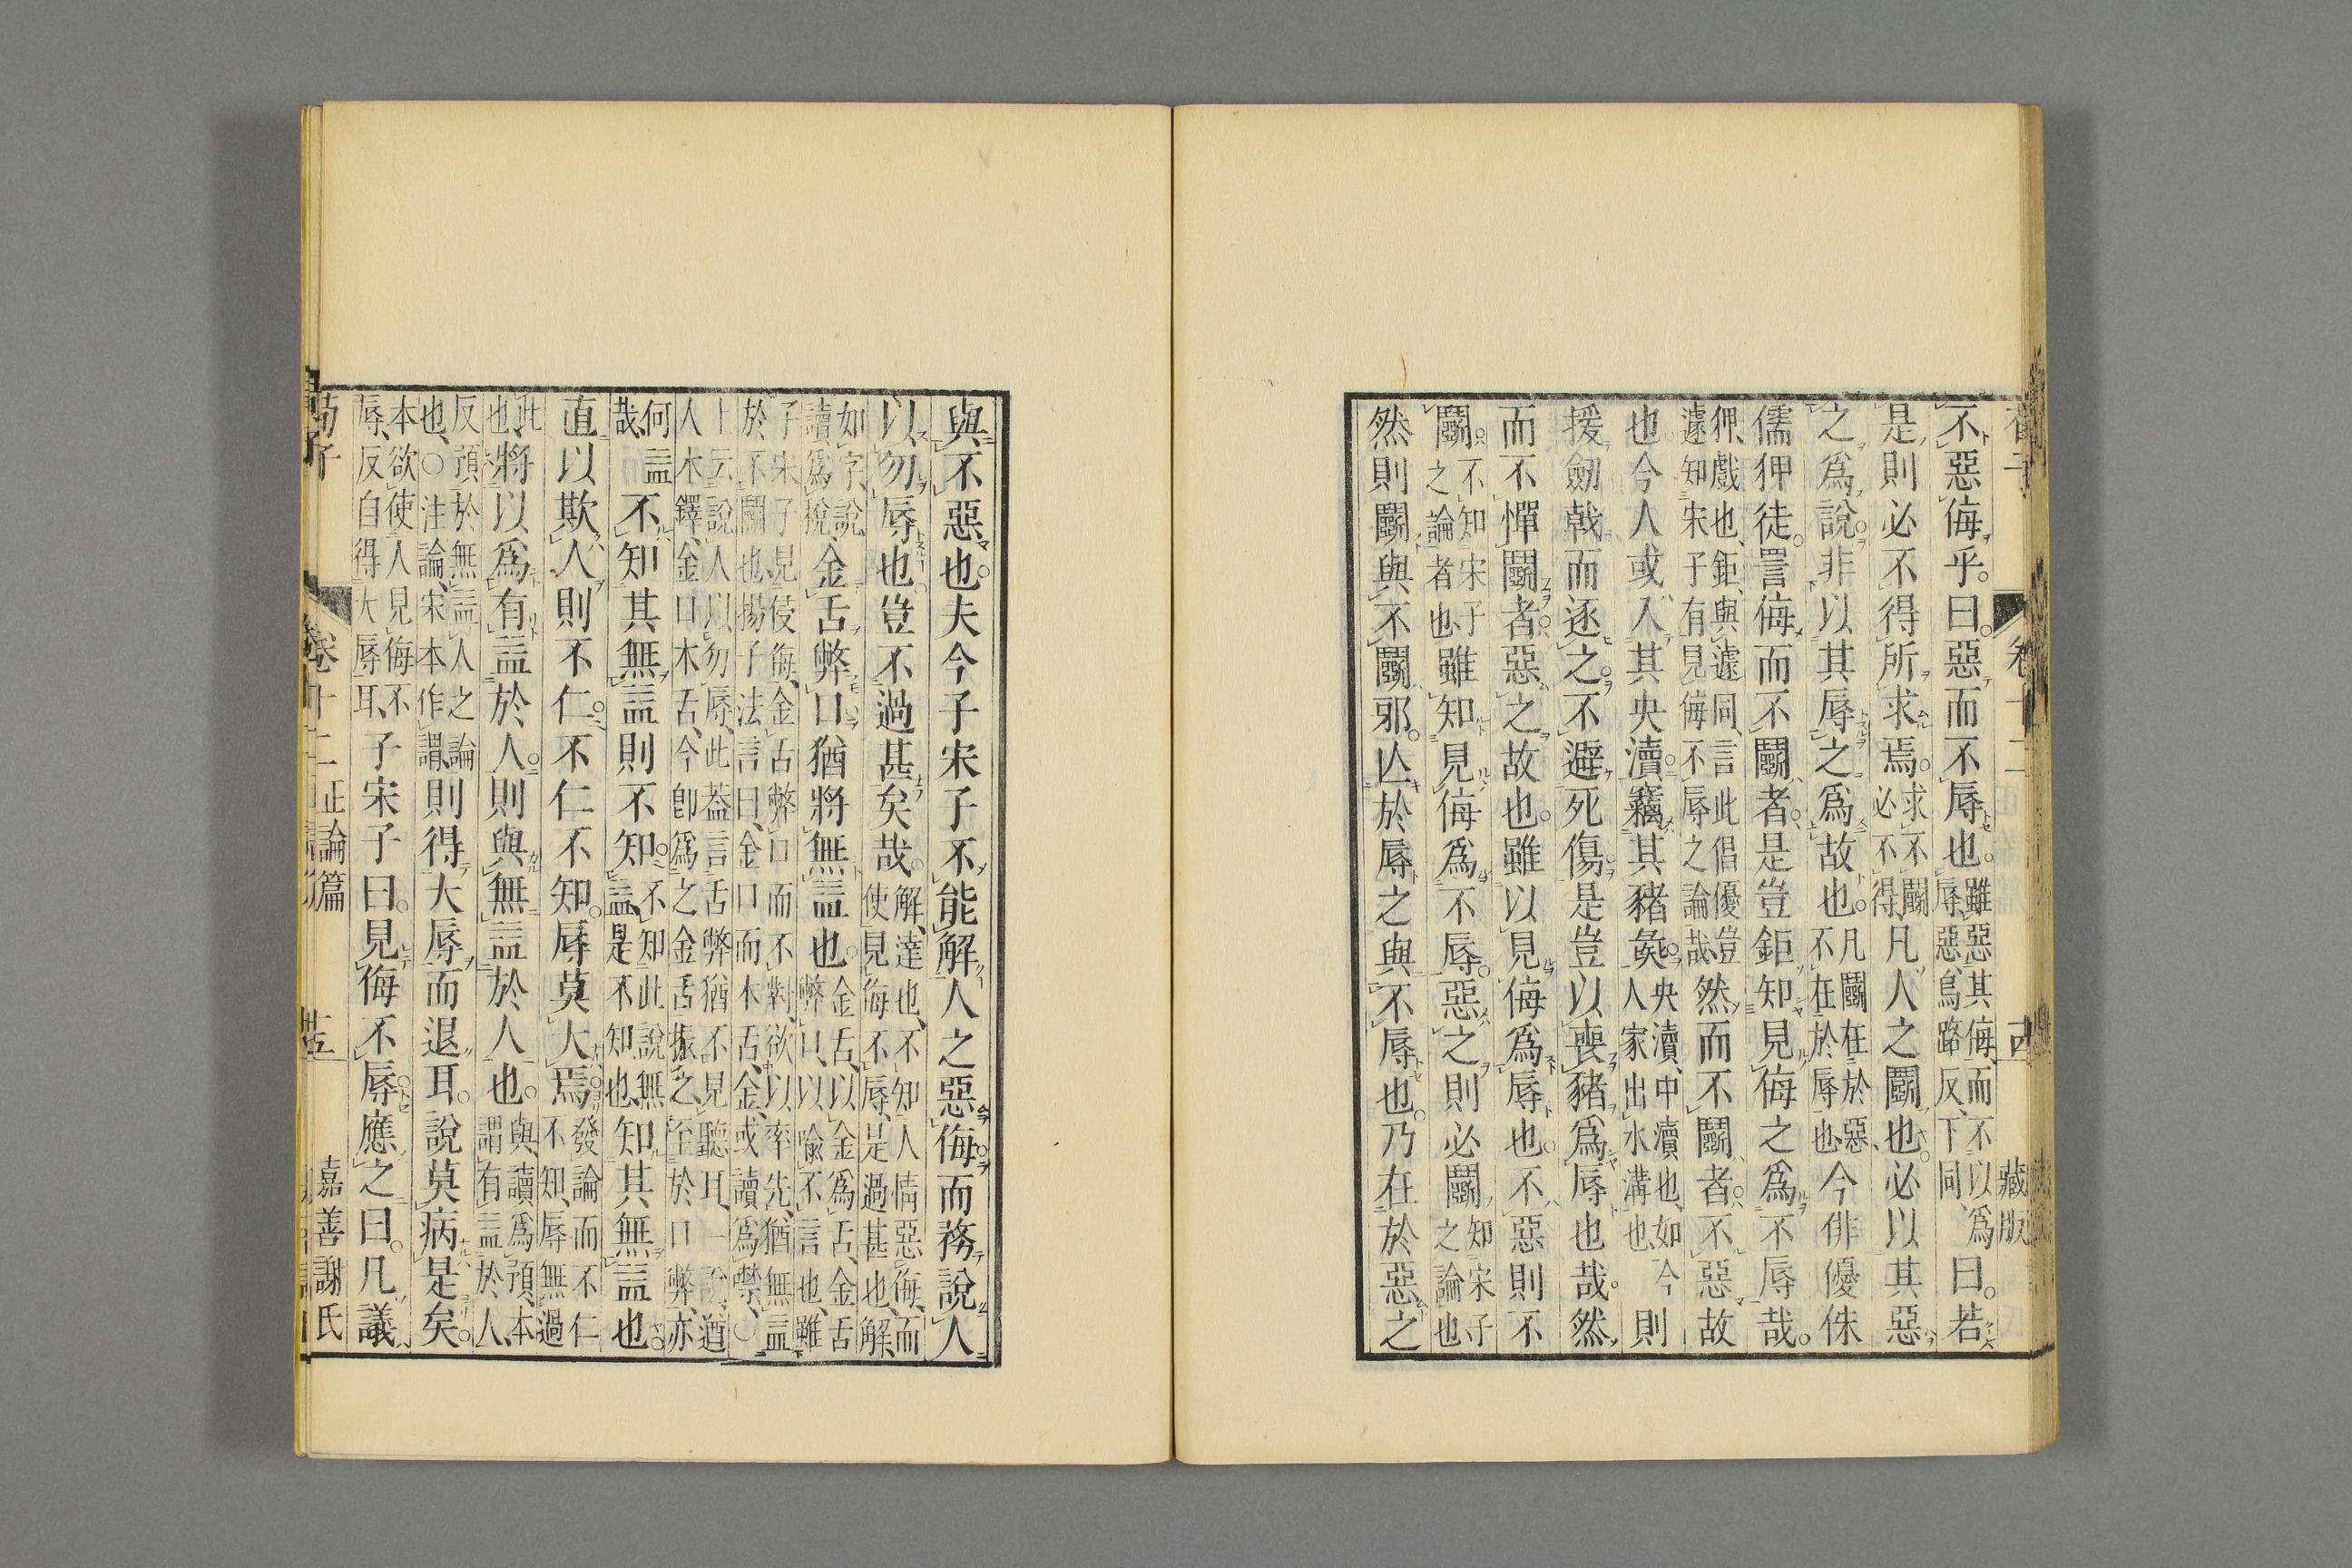 荀子 卷十二 藏版
不惡侮乎。曰。惡而不辱也。雖惡其侮而不以爲辱惡烏路反、下同、曰。若
是則必不得所求焉。求不鬭必不得、凡人之鬭也。必以其惡
之爲說。非以其辱之爲故也。凡鬭在於惡、不在於辱也今俳優侏
儒狎徒。詈侮而不鬭者。是豈鉅知見侮之爲不辱哉。
狎、戲也、鉅、與遽同、言此倡優豈遽知宋子有見侮不辱之論哉然而不鬭者。不惡故
也今人或入其央瀆。竊其豬彘。央瀆、中瀆也、如今人家出水溝也則
援劒戟而逐之。不避死傷。是豈以喪豬爲辱也哉。然
而不憚鬭者。惡之故也。雖以見侮爲辱也。不惡則不
鬭。不知宋子之論者也雖知見侮爲不辱。惡之則必鬭知宋子之論也
然則鬭與不鬭邪。亾於辱之與不辱也。乃在於惡之
與不惡也。夫今子宋子不能解人之惡侮。而務說人
以勿辱也。豈不過甚矣哉。解、達也、不知人情惡侮、而使見侮不辱、是過甚也、解、
如字、說讀爲稅、金舌弊口。猶將無益也。金舌、以金爲舌、金舌弊口、以喩不言也、雖
子宋子見侵侮、金舌弊口而不對、欲以率先、猶無益於不鬭也、揚子法言曰、金口而木舌、金、或讀爲噤、〇
上云、說人以勿辱、此葢言舌弊猶不見聽耳、一說、猶人木鐸、金口木舌、今卽爲之金舌振之、至於口弊、亦
何益哉、不知其無益則不知。不知此說無益、是不知也、知其無益也。
直以欺人則不仁。不仁不知。辱莫大焉。發論而不仁不知、辱無過
此也、將以爲有益於人。則與無益於人也。與、讀爲預、本謂有益於人、
反預於無益人之論也、〇注論、宋本作謂、則得大辱而退耳。說莫病是矣。
本欲使人見侮不辱、反自得大辱耳、子宋子曰。見侮不辱。應之曰。凡議。
荀子 卷十二 正論篇 十五 嘉善謝氏